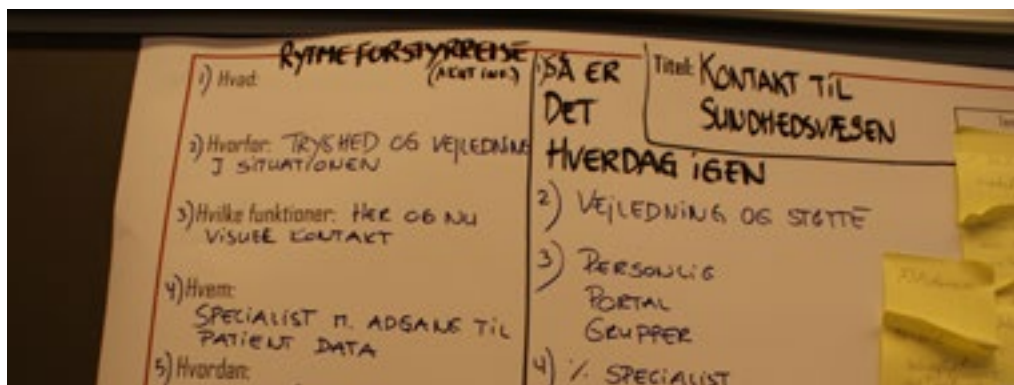 RYTMEFORSTYRRELSE
(AKUT INF.)
1) Hvad:
2) Hvorfor: TRYGHED OG VEJLEDNING
I SITUATIONEN
3) Hvilke funktioner: HER OG NU
VISUEL KONTAKT
4) Hvem:
SPECIALIST M. ADGANG TIL
PATIENT DATA
5) Hvordan:
1) SÅ ER
DET
HVERDAG IGEN
Titel: KONTAKT TIL
SUNDHEDSVÆSEN
2) VEJLEDNING OG STØTTE
3) PERSONLIG
PORTAL
GRUPPER
4) % SPECIALIST